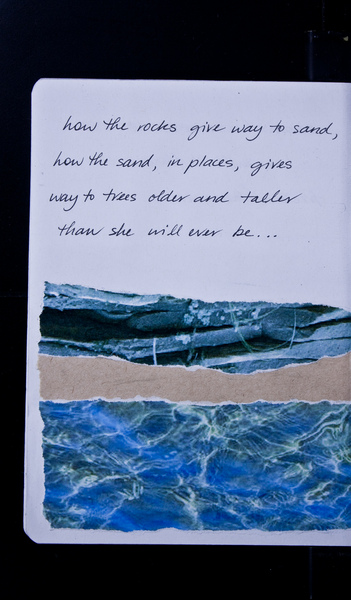 how the rocks give way to sand,
how the sand, in places, gives
way to trees older and taller
than she will ever be...